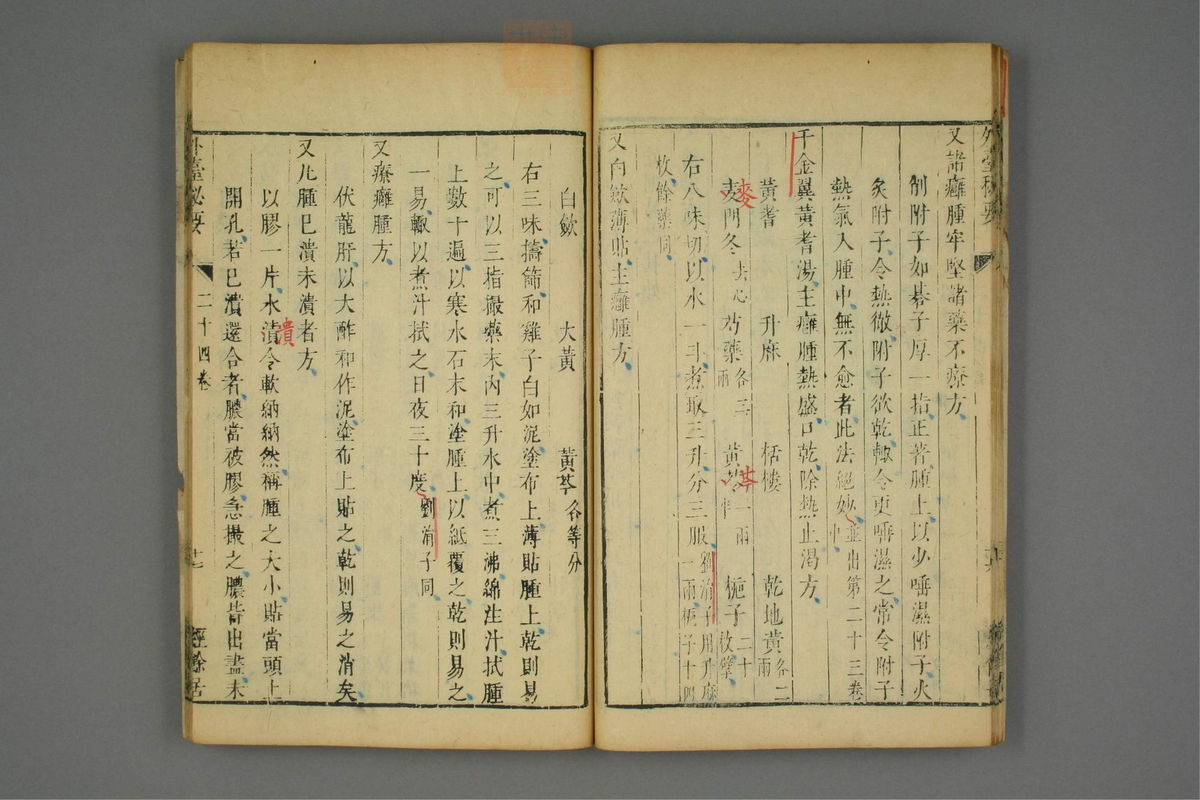 外臺秘要
又諸癰腫牢堅諸藥不療方
削附子如棊子厚一指正著腫上以少唾濕附子火
灸附子令熱徹附子欲乾輙令更唾濕之常令附子
熱氣入腫中無不愈者此法絕妙並出第二十三卷中
千金翼黃耆湯主癰腫熱盛口乾除熱止渴方
黃耆 升麻 栝樓 乾地黃各二兩
麥
麦門冬去心 芍藥各三兩 黃芩一兩半 梔子二十枚擘
芩
右八味切以水一斗煮取三升分三服劉涓子用升麻一兩梔子十四
枚餘藥同
又白歛薄貼主癰腫方
白歛 大黃 黃芩各等分
右三味擣篩和雞子白如泥塗布上薄貼腫上乾則易
之可以三指撮藥末內三升水中煮三沸綿注汁拭腫
上數十遍以寒水石末和塗腫上以紙覆之乾則易之
一易輙以煮汁拭之日夜三十度劉涓子同
又療癰腫方
伏龍肝以大酢和作泥塗布上貼之乾則易之消矣
又凡腫巳潰未潰者方
潰
以膠一片水漬令軟納納然稱腫之大小貼當頭上
開孔若巳潰還合者膿當被膠急撮之膿皆出盡未
外臺秘要 二十四卷 十七 經餘居